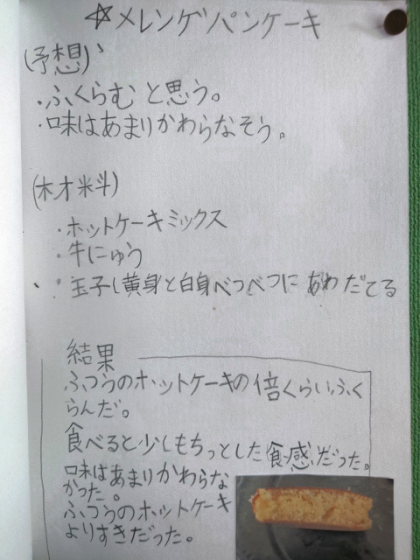 ☆メレンゲパンケーキ
(予想)
・ふくらむと思う。
・味はあまりかわらなそう。
(材料)
・ホットケーキミックス
・牛にゅう
・玉子し黄身と白身べつべつに あわだてる
結果
ふつうのホットケーキの倍くらいふく
らんだ。
食べると少しもちっとした食感だった。
味はあまりかわらな
かった。
ふつうのホットケーキ
よりすきだった。